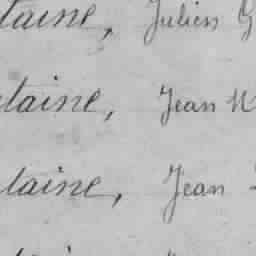 taine, Julien G
taine, Jean N
taine, Jean